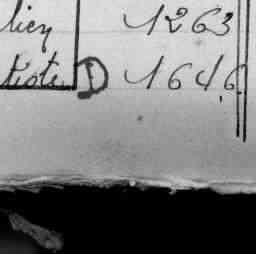 lien 1263
tiste D 1646